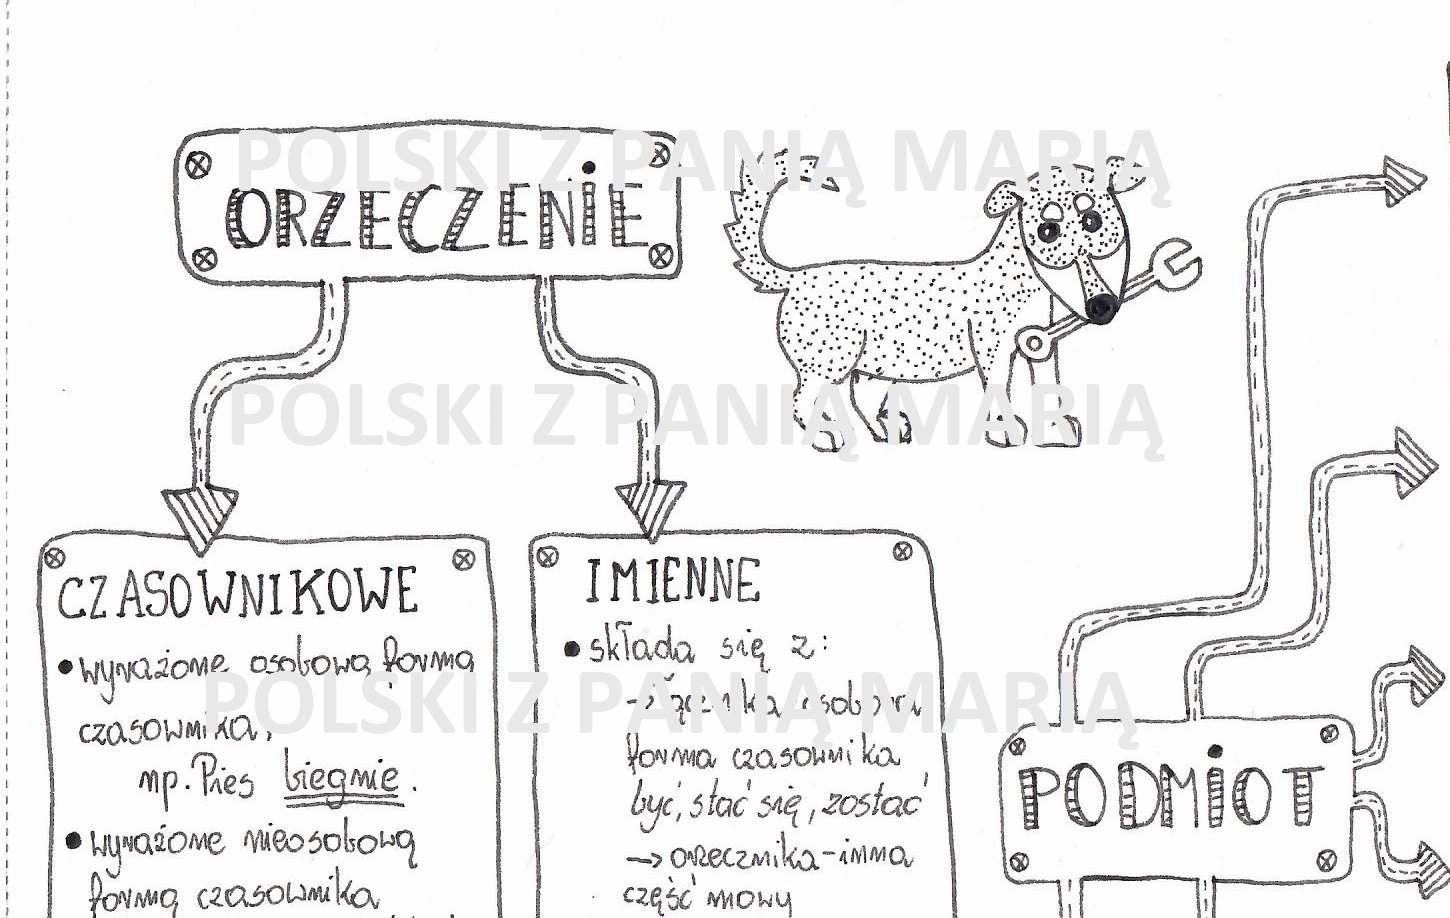 POLSKI Z PANIĄ MARIĄ
ORZECZENIE
POLSKI Z PANIĄ MARIĄ
CZASOWNIKOWE
• wyrażone osobową formą
czasownika,
np. Pies biegnie.
• wyrażone nieosobową
formą czasownika
IMIENNE
• składa się z:
→ łącznika - osobowa
forma czasownika
być, stać się, zostać
→ orzecznika - inna
część mowy
POLSKI Z PANIĄ MARIĄ
PODMIOT